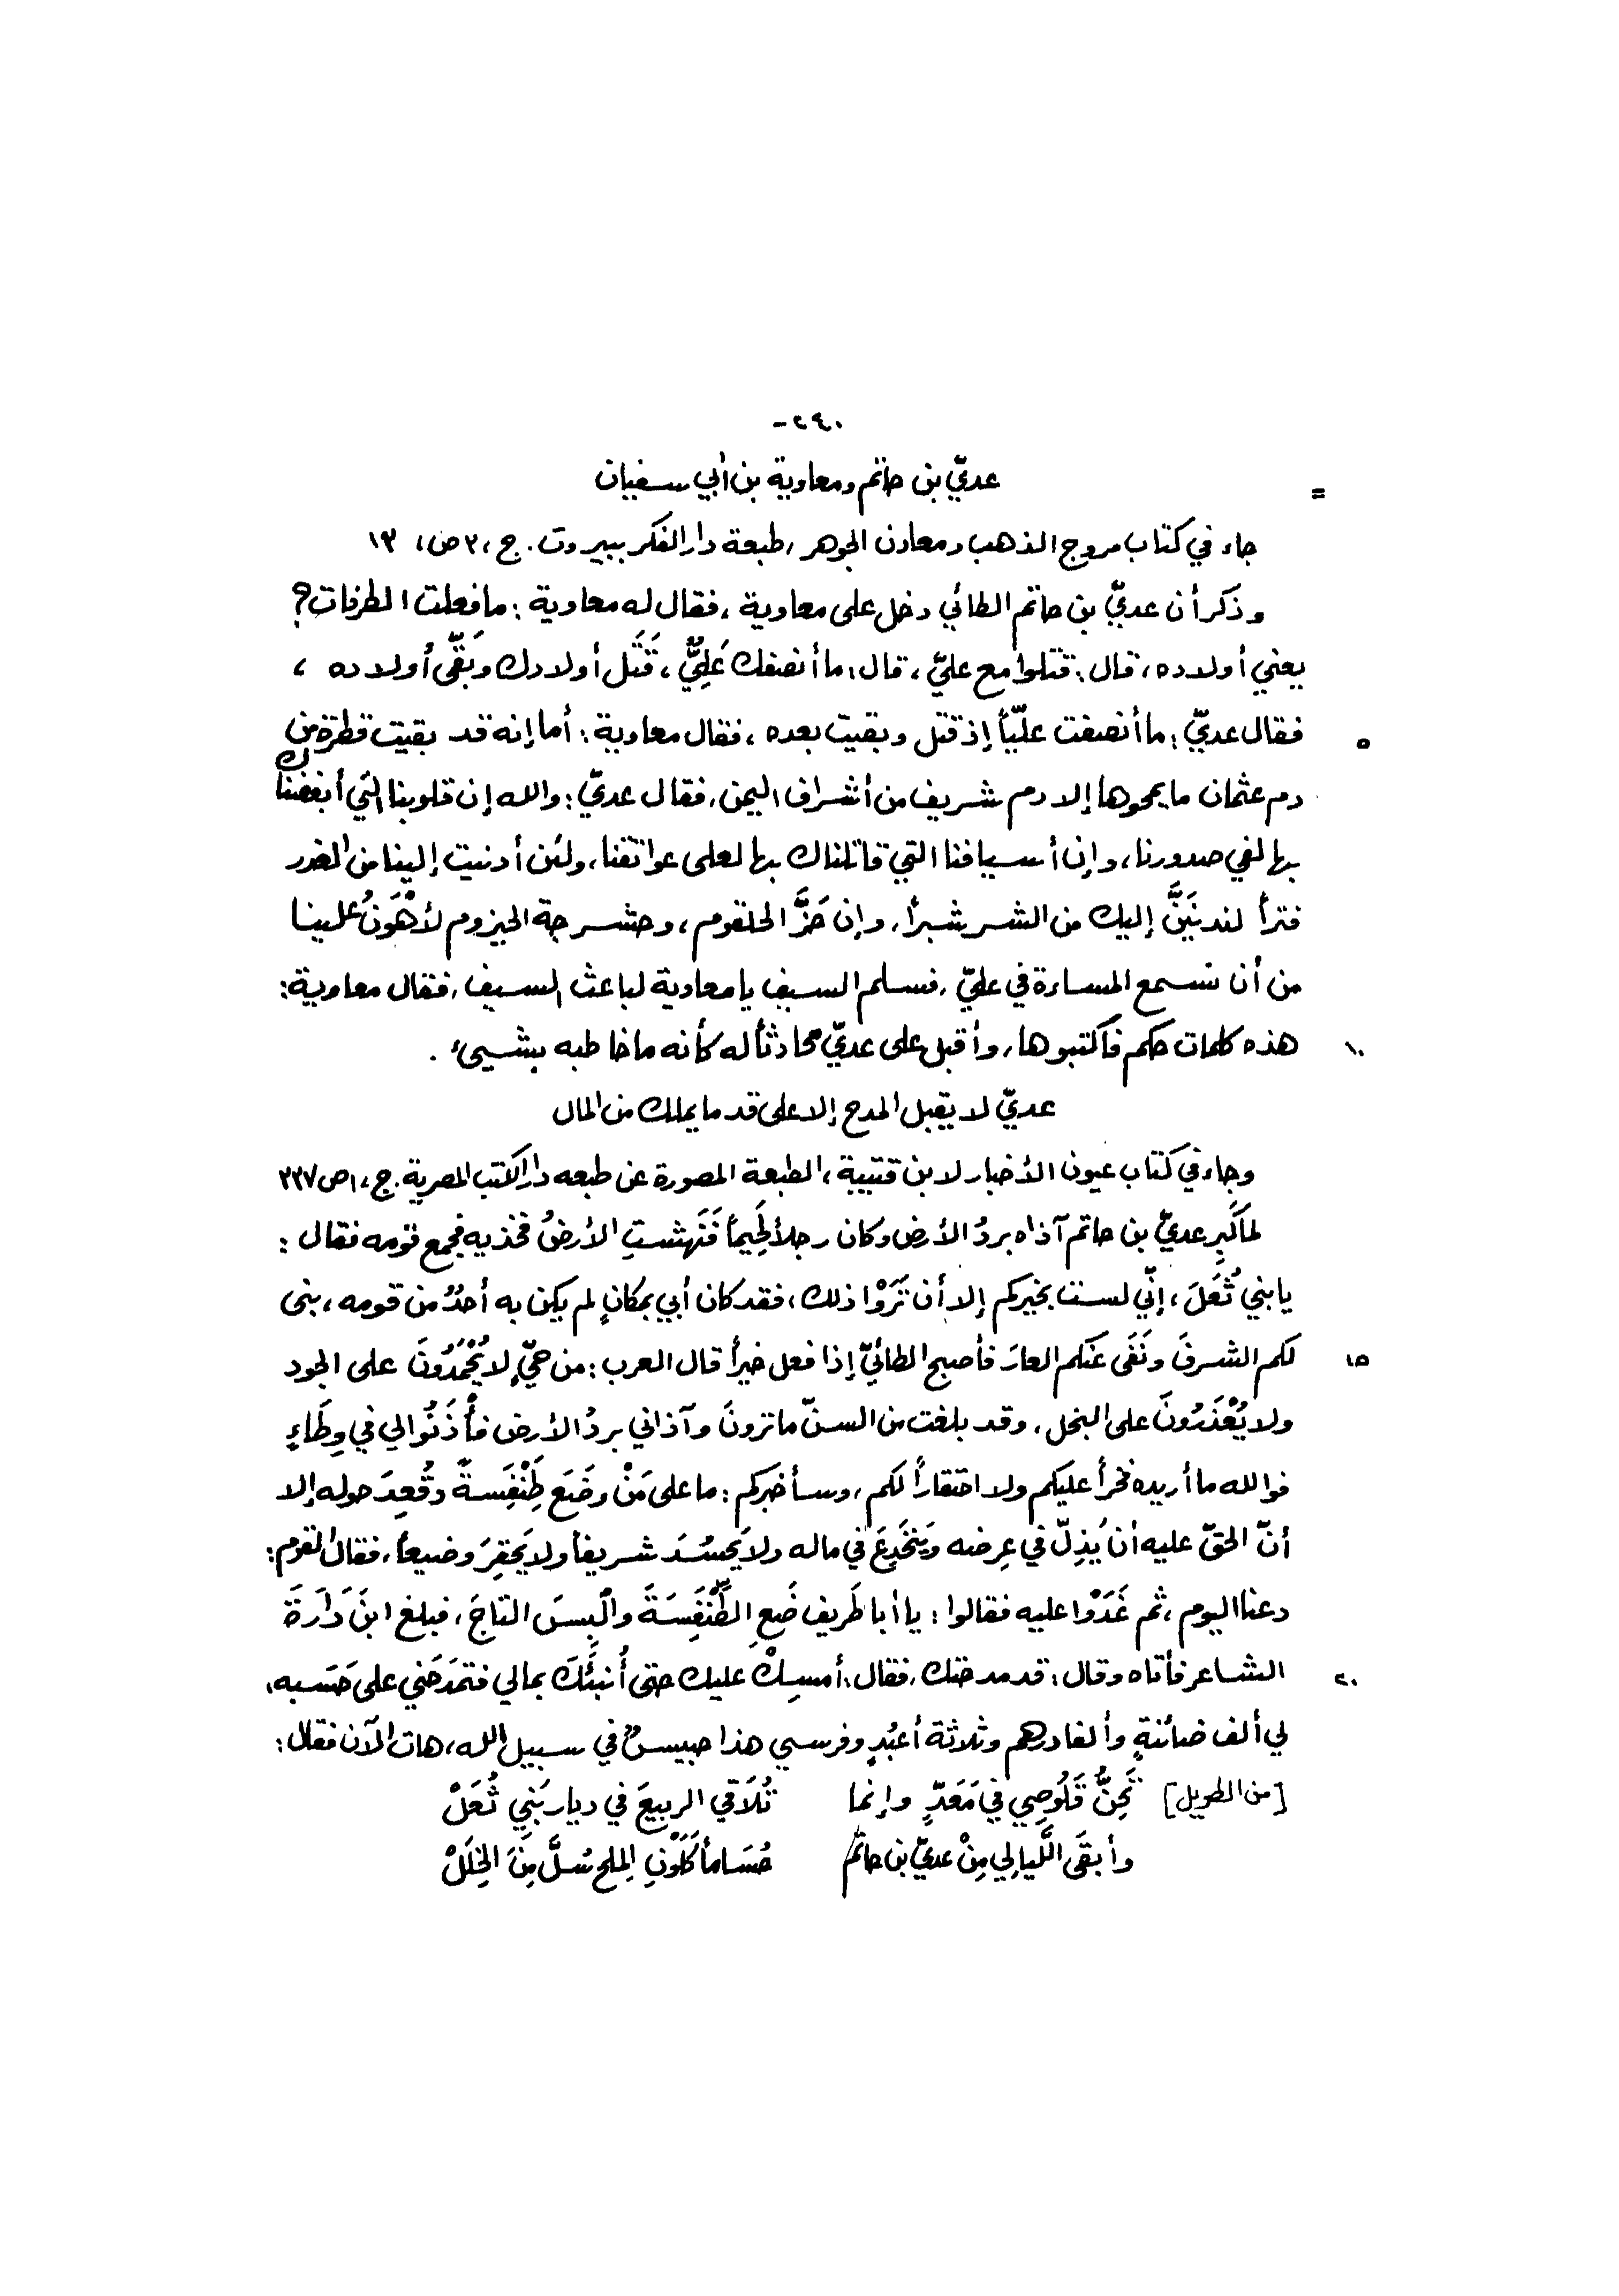 -٢٤٠
= عديّ بن حاتم ومعاوية بن أبي سفيان
جاء في كتاب مروج الذهب ومعادن الجوهر، طبعة دار الفكر ببيروت. ج، ٣ ص، ١٣
وذكر أن عديّ بن حاتم الطائي دخل على معاوية، فقال له معاوية: ما فعلت الطرفات؟
يعني أولاده، قال: قتلوا مع عليّ، قال: ما أنصفك عَلِيٌّ، قَتَل أولادك وبَقَّى أولاده،
٥ فقال عديّ: ما أنصفت عليّاً إذ قتل وبقيت بعده، فقال معاوية: أما إنه قد بقيت قطرة من
دم عثمان ما يمحوها إلا دم شريف من أشراف اليمن، فقال عديّ: والله إن قلوبنا التي أبغضناك
بها لفي صدورنا، وإن أسيافنا التي قاتلناك بها لعلى عواتقنا، ولئن أدنيت إلينا من الغدر
فتراً لندنيَنَّ إليك من الشر شبراً، وإن حَزَّ الحلقوم، وحشرجة الحيزوم لأَهْوَنُ علينا
من أن نسمع المساءة في عليّ، فسلم السيف يا معاوية لباعث السيف، فقال معاوية:
١٠ هذه كلمات حكم فاكتبوها، وأقبل على عديّ محادثاً له كأنه ما خاطبه بشيىء.
عديّ لا يقبل المدح إلا على قد ما يملك من المال
وجاء في كتاب عيون الأخبار لابن قتيبة، الطبعة المصورة عن طبعه دار الكتب المصرية. ج، ١ ص ٣٣٧
لما كَبِر عديّ بن حاتم آذاه بردُ الأرض وكان رجلاً لَحِيماً فَنَهشتِ الأرضُ فخذيه فجمع قومه فقال:
يا بني ثُعَلَ، إنّي لست بخيركم إلا أن تَرَوْا ذلك، فقد كان أبي بمكانٍ لم يكن به أحدٌ من قومه، بنى
١٥ لكم الشرفَ ونَفَى عنكم العارَ فأصبح الطائيّ إذا فعل خيراً قال العرب: من حيٍّ لا يُحْمَدُونَ على الجود
ولا يُعْذَرُونَ على البخل، وقد بلغت من السنّ ما ترونَ وآذاني بردُ الأرض فأْذَنُوا لي في وِطَاءٍ
فوالله ما أريده فخراً عليكم ولا احتقاراً لكم، وسأخبركم: ما على مَنْ وضَعَ طِنْفِسةً وقُعِدَ حوله إلا
أنّ الحقّ عليه أن يَذِلّ في عِرضه ويَنخَدِعَ في ماله ولا يَحسُدَ شريفاً ولا يَحقِرَ وضيعاً، فقال القوم:
دعنا اليوم، ثم غَدَوْا عليه فقالوا: يا أبا طَريف ضَعِ الطِّنْفِسَةَ والْبسَ التاجَ، فبلغ ابنَ دَارَةَ
٢٠ الشاعر فأتاه وقال: قد مدحتك، فقال: أمسِكْ عليك حتى أُنبئَكَ بمالي فتمدَحَني على حَسَبه،
لي ألف ضائنةٍ وألفا درهم وثلاثة أعبُدٍ وفرسي هذا حبيسٌ في سبيل الله، هات الآن فقال:
[من الطويل] تَحِنُّ قَلُوصِي في مَعَدٍّ وإنما تُلاَقي الربيعَ في ديار بَنِي ثُعَلْ
وأبقَى اللَّيالِي مِنْ عديّ بن حاتم حُسَاماً كَلَوْنِ المِلحِ سُلَّ مِنَ الخِلَلْ